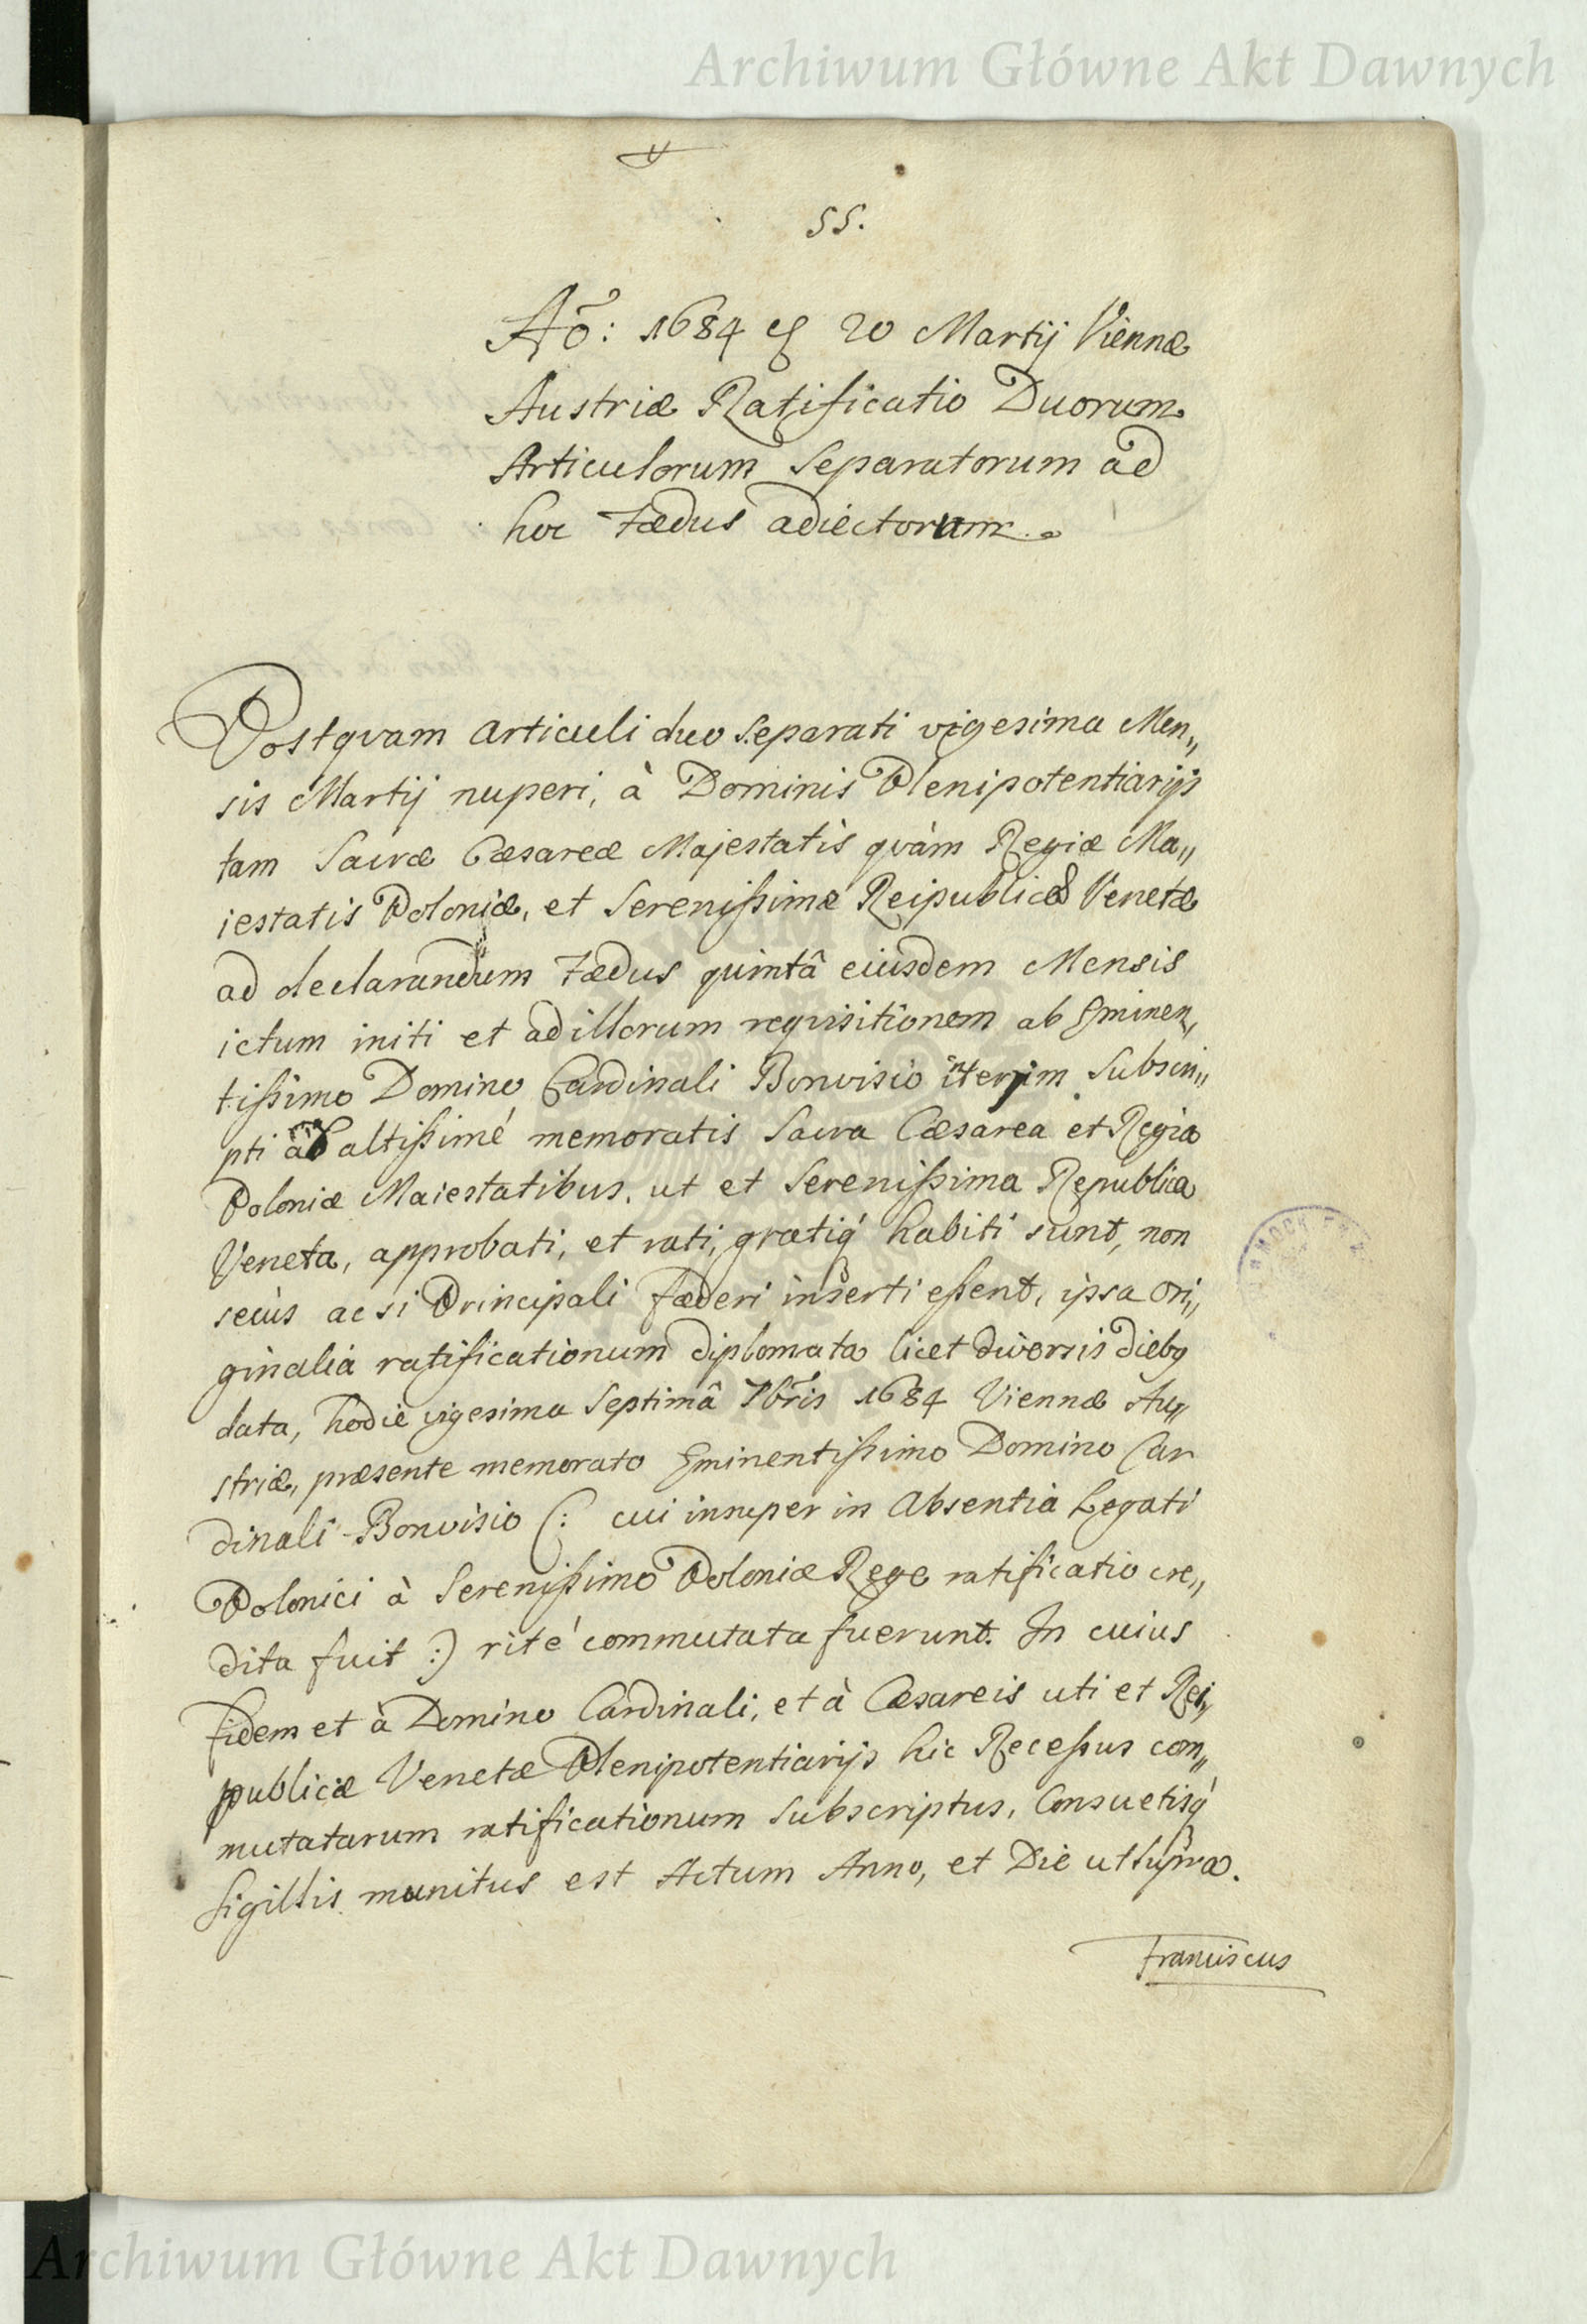 Archiwum Główne Akt Dawnych
55.
Aõ: 1684 20 Martij Viennæ
Austriæ Ratificatio Duorum
Articulorum Separatorum ad
hoc Fædus adiectorum.
Postqvam articuli duo Separati vigesima Men„
sis Martij nuperi, à Dominis Plenipotentiarijs
tam Sacræ Cæsareæ Majestatis qvàm Regiæ Ma„
iestatis Poloniæ, et Serenissimæ Reipublicæ Venetæ
ad declarandum Fædus quintâ eiusdem Mensis
ictum initi et ad illorum reqvisitionem ab Eminen„
tissimo Domino Cardinali Bonvisio interim Subscri„
pti ab altissimé memoratis Sacra Cæsarea et Regia
Poloniæ Maiestatibus, ut et Serenissima Republica
Veneta, approbati, et rati, gratiq́ habiti sunt, non
secùs ac si Principali fæderi inserti essent, ipsa Ori„
ginalia ratificationum diplomata licet diversis diebq
data, hodie vigesima Septimâ 7br̃is 1684 Viennæ Au„
striæ, præsente memorato Eminentissimo Domino Car
dinali Bonvisio (: cui insuper in Absentia Legati
Polonici à Serenissimo Poloniæ Rege ratificatio cre„
dita fuit :) rité commutata fuerunt. In cuius
fidem et à Domino Cardinali, et à Cæsareis uti et Rei„
publicæ Venetæ Plenipotentiarijs hic Recessus com„
mutatarum ratificationum Subscriptus, Consuetisq́
Sigillis munitus est Actum Anno, et Die ut Supra.
Franciscus
Archiwum Główne Akt Dawnych